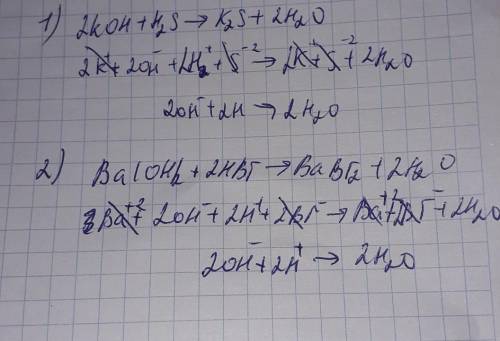 1) 2KOH + H₂S → K₂S + 2H₂O
2K⁺ + 2OH⁻ + 2H₂⁺ + S⁻² → 2K⁺ + S⁻² + 2H₂O
2OH⁻ + 2H → 2H₂O
2) Ba(OH)₂ + 2HBr → BaBr₂ + 2H₂O
Ba⁺² + 2OH⁻ + 2H⁺ + 2Br⁻ → Ba⁺² + 2Br⁻ + 2H₂O
2OH⁻ + 2H⁺ → 2H₂O